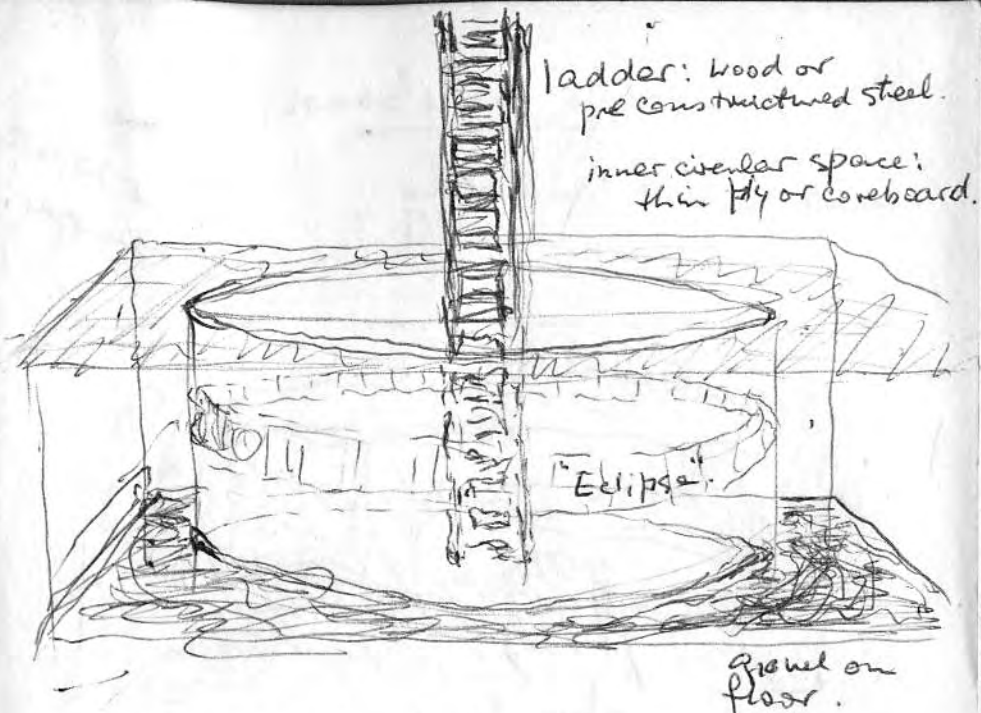 ladder: wood or
pre constructured steel.
inner circular space:
thin ply or coreboard.
"Eclipse".
gravel on
floor.